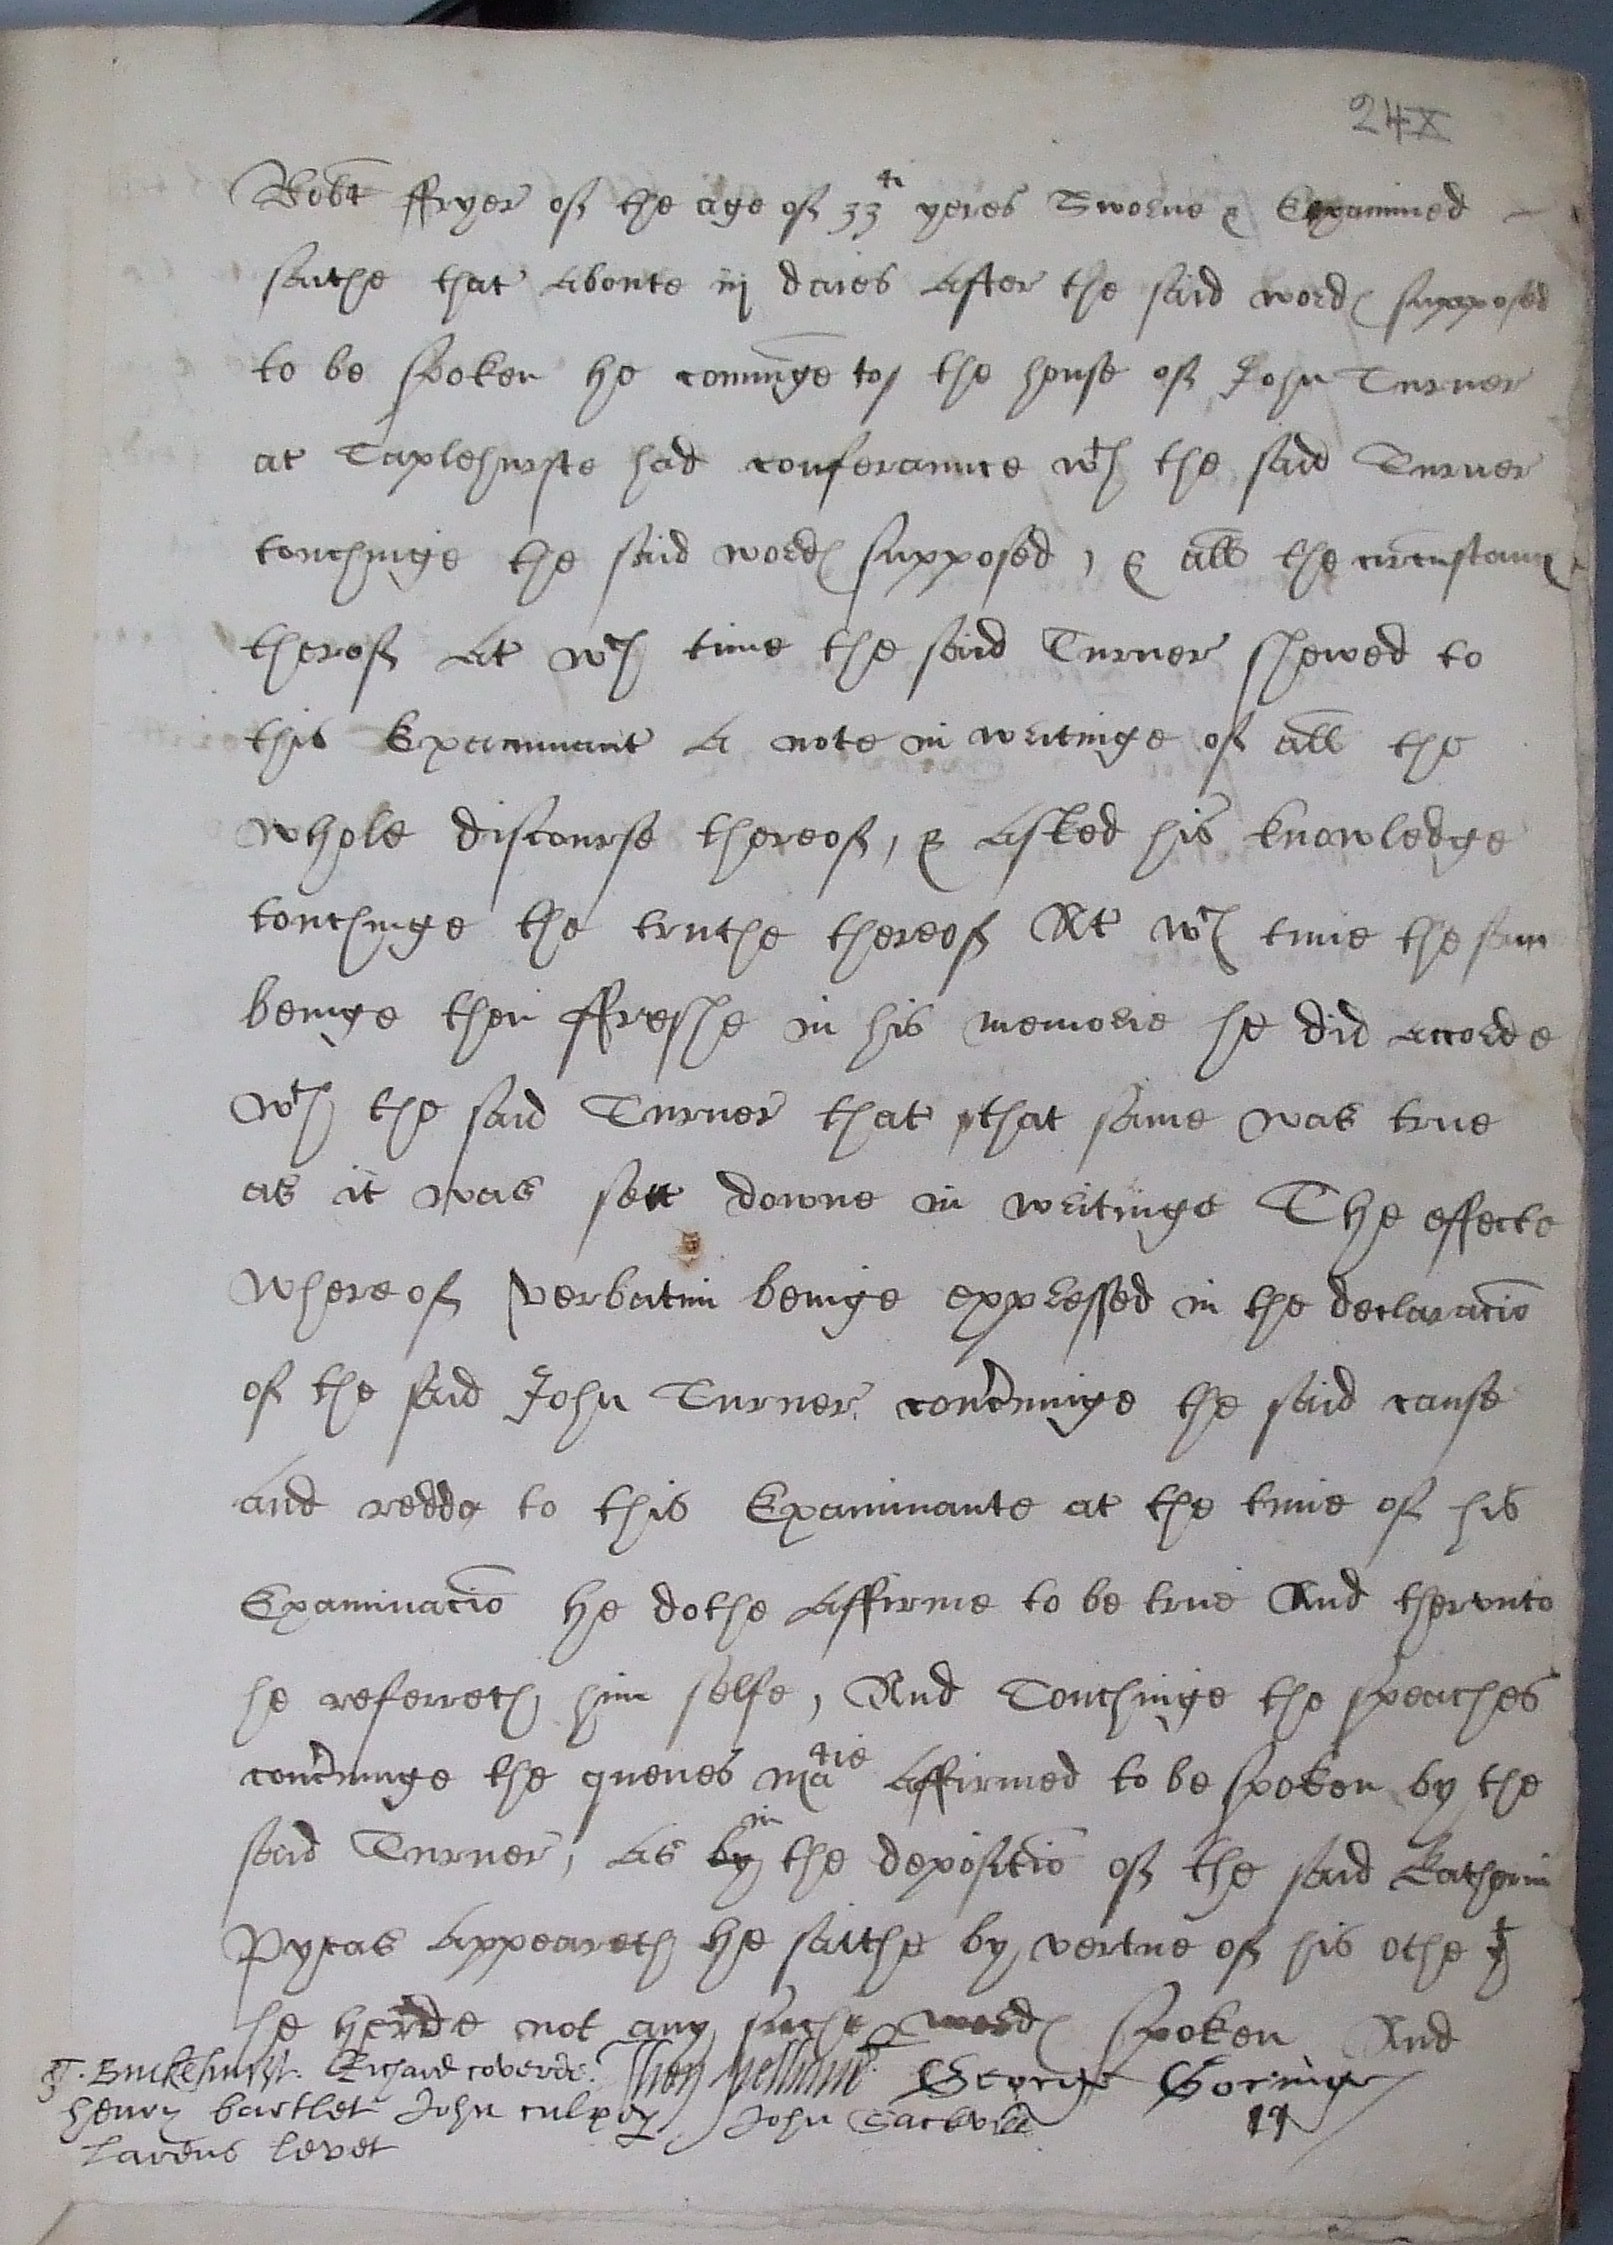 24X
Robt ffryer of the age of 33ti yeres Sworne & Examined
saithe that aboute iij daies after the said words supposed
to be spoken he cominge to the house of John Turner
at Taplehurste had conferannce wth the said Turner
touchinge the said words supposed, & all the circunstanc
therof At wch time the said Turner shewed to
this Examinant A note in writinge of all the
whole discourse thereof, & Asked his knowledge
touchinge the truthe thereof At wch time the sam
beinge then ffreshe in his memorie he did accorde
wth the said Turner that that same was true
as it was sett downe in writinge The effecte
where of verbatim beinge expressed in the declaracio
of the said John Turner concrninge the said cause
and redde to this Examinante at the time of his
Examinacio he dothe Affirme to be true And thervnto
he referreth him selfe, And Touchinge the speaches
concrninge the quenes matie Affirmed to be spoken by the
said Turner, As by in the depositio of the said Katherin
Pycas Appeareth he saithe by vertue of his othe yt
he herde not any suche words spoken And
T. Buckehurst. Richard coverte. Thos Pelham George Goringe
henry bartlet John culpep John Sackvile 11
larens levet